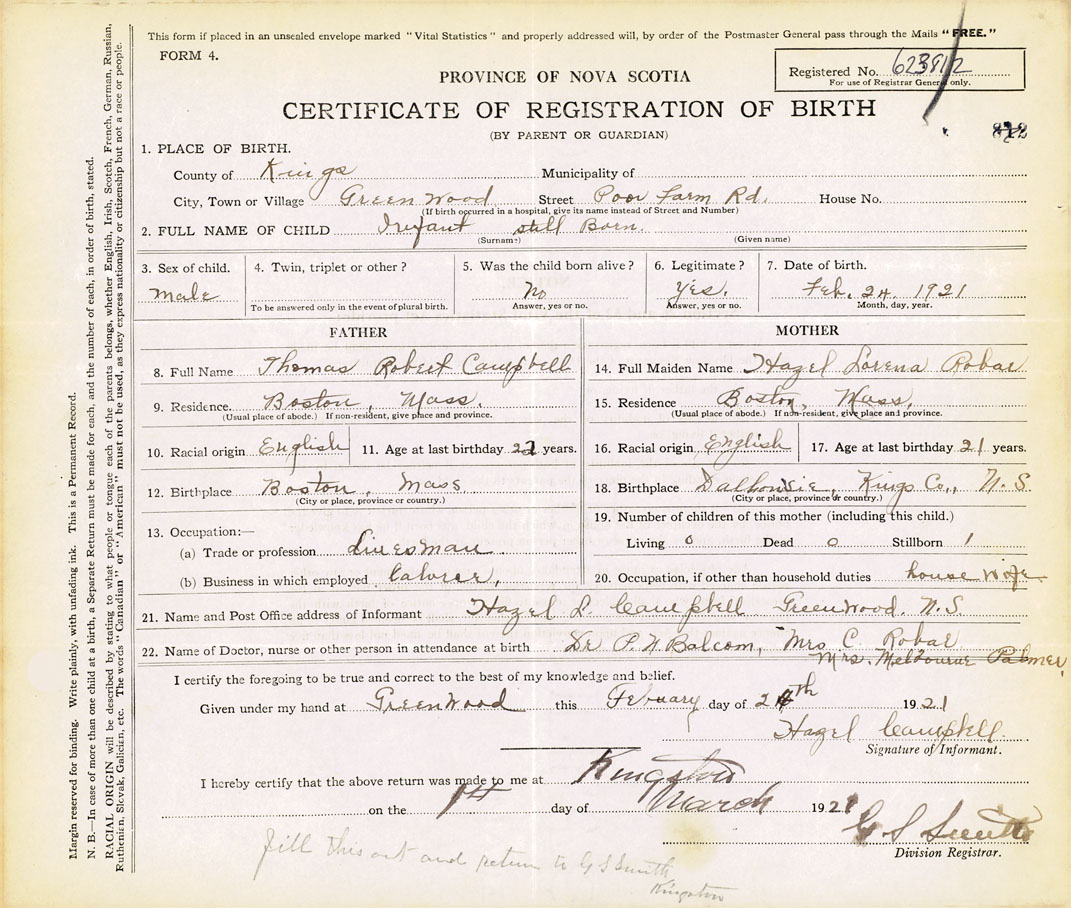 This form if placed in an unsealed envelope marked "Vital Statistics" and properly addressed will, by order of the Postmaster General pass through the Mails "FREE."
FORM 4.
PROVINCE OF NOVA SCOTIA
Registered No. 623812
For use of Registrar General only.
CERTIFICATE OF REGISTRATION OF BIRTH
(BY PARENT OR GUARDIAN)
812
1. PLACE OF BIRTH.
County of Kings Municipality of
City, Town or Village Green Wood Street Poor Farm Rd. House No.
(If birth occurred in a hospital, give its name instead of Street and Number)
2. FULL NAME OF CHILD Infant still Born.
(Surname) (Given name)
3. Sex of child. 4. Twin, triplet or other? 5. Was the child born alive? 6. Legitimate? 7. Date of birth.
Male No Yes. Feb. 24. 1921
To be answered only in the event of plural birth. Answer, yes or no. Answer, yes or no. Month, day, year.
FATHER MOTHER
8. Full Name Thomas Robert Campbell 14. Full Maiden Name Hazel Lorena Robar
9. Residence. Boston, Mass. 15. Residence Boston, Mass.
(Usual place of abode.) If non-resident, give place and province. (Usual place of abode.) If non-resident, give place and province.
10. Racial origin English 11. Age at last birthday 22 years. 16. Racial origin English 17. Age at last birthday 21 years.
12. Birthplace Boston, Mass 18. Birthplace Dalhousie, Kings Co., N.S.
(City or place, province or country.) (City or place, province or country.)
13. Occupation:— 19. Number of children of this mother (including this child.)
(a) Trade or profession Linesman Living 0 Dead 0 Stillborn 1
(b) Business in which employed labourer, 20. Occupation, if other than household duties house wife
21. Name and Post Office address of Informant Hazel L. Campbell Greenwood. N.S.
22. Name of Doctor, nurse or other person in attendance at birth Dr P. N Balcom, Mrs C. Robar
Mrs. Melbourne Palmer
I certify the foregoing to be true and correct to the best of my knowledge and belief.
Given under my hand at GreenWood this Febuary day of 24th 1921
Hazel Campbell.
Signature of Informant.
I hereby certify that the above return was made to me at Kingston
on the 1st day of March 1921
G S Smith
Division Registrar.
Fill this out and return to G S Smith
Kingston
Margin reserved for binding. Write plainly, with unfading ink. This is a Permanent Record.
N. B.—In case of more than one child at a birth, a Separate Return must be made for each, and the number of each, in order of birth, stated.
RACIAL ORIGIN will be described by stating to what people or tongue each of the parents belongs, whether English, Irish, Scotch, French, German, Russian,
Ruthenian, Slovak, Galician, etc. The words "Canadian" or "American" must not be used, as they express nationality or citizenship but not a race or people.